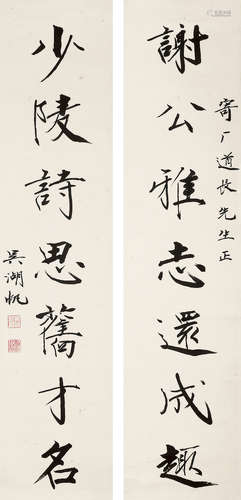 寄厂道長先生正
謝公雅志還成趣
少陵詩思舊才名
吳湖帆